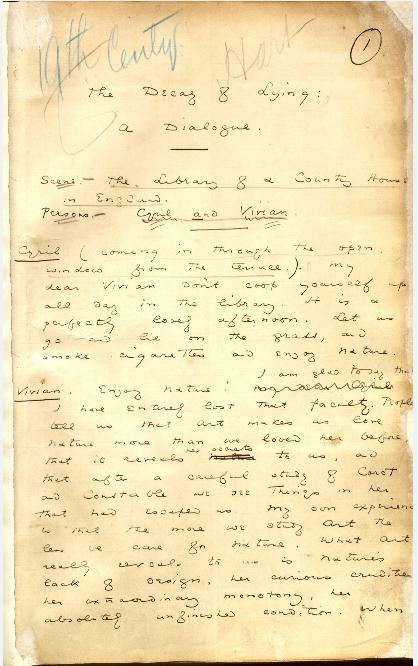 19th Centy. Hart
1
The Decay of Lying:
A Dialogue.
Scene.— The Library of a Country House
in England.
Persons.— Cyril and Vivian.
Cyril (coming in through the open
window from the terrace.). My
dear Vivian dont coop yourself up
all day in the library. It is a
perfectly lovely afternoon. Let us
go and lie on the grass, and
smoke cigarettes and enjoy nature.
I am glad to say that
Vivian. Enjoy nature!
I have entirely lost that faculty. People
tell us that Art makes us love
nature more than we loved her before,
that it reveals her secrets to us, and
that after a careful study of Corot
and Constable we see things in her
that had escaped us. My own experience
is that the more we study Art the
less we care for nature. What Art
really reveals to us is natures
lack of design, her curious crudities
her extraordinary monotony, her
absolutely unfinished condition. When